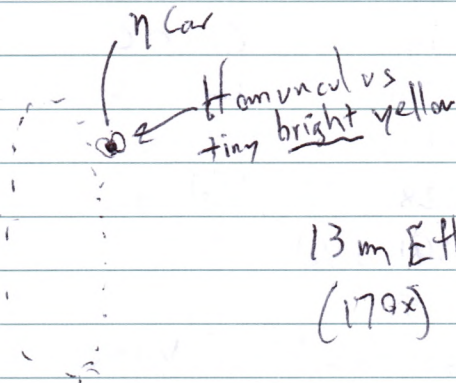 η Car
Homunculus
tiny bright yellow
13 mm Eth
(170x)